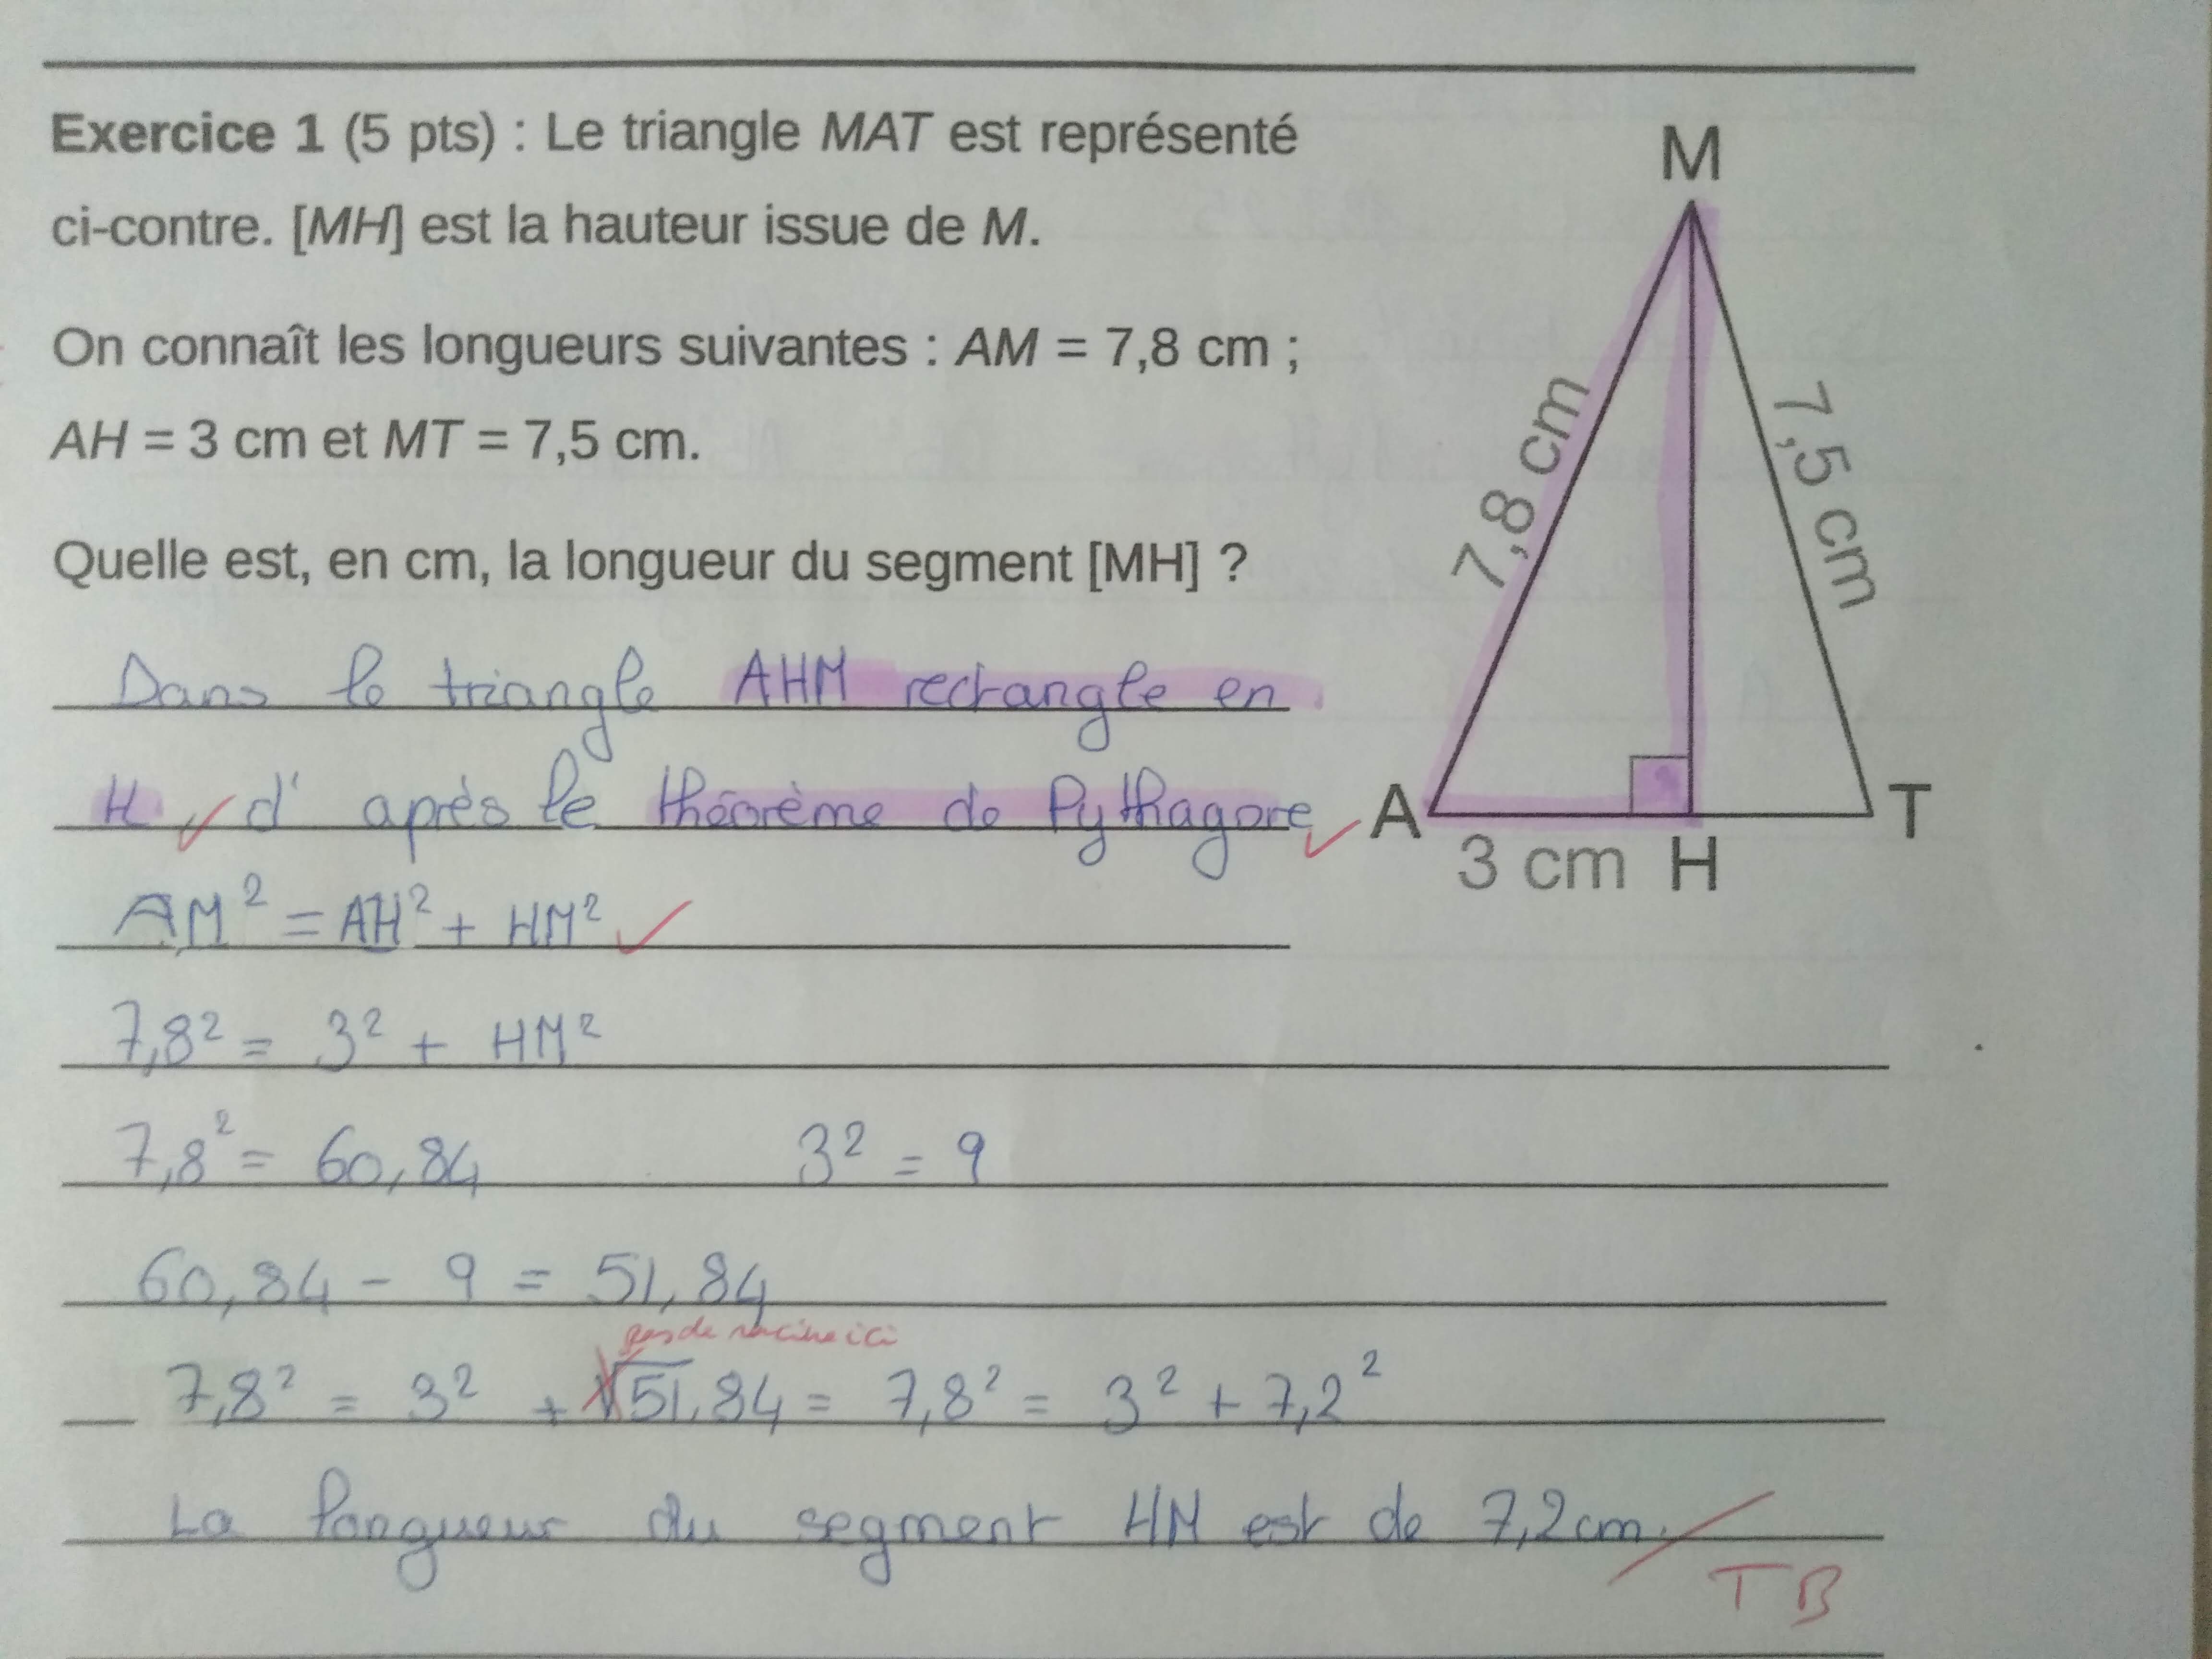 Exercice 1 (5 pts) : Le triangle MAT est représenté
ci-contre. [MH] est la hauteur issue de M.
On connaît les longueurs suivantes : AM = 7,8 cm ;
AH = 3 cm et MT = 7,5 cm.
Quelle est, en cm, la longueur du segment [MH] ?
M
7,8 cm
7,5 cm
A
T
3 cm H
Dans le triangle AHM rectangle en
H d'après le théorème de Pythagore
AM² = AH² + HM²
7,8² = 3² + HM²
7,8² = 60,84 3² = 9
60,84 - 9 = 51,84
pas de racine ici
7,8² = 3² + √51,84 = 7,8² = 3² + 7,2²
La longueur du segment HM est de 7,2cm.
TB